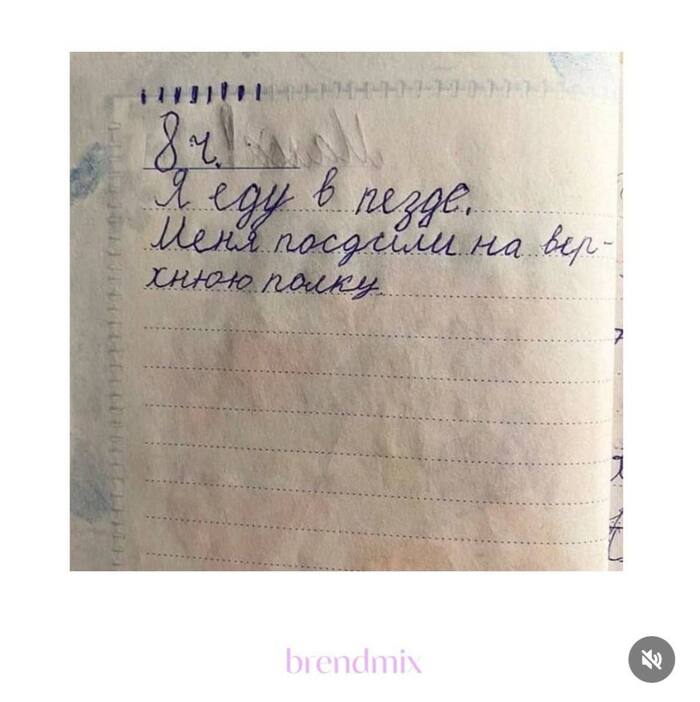 8 ч.
Я еду в пезде.
Меня посдили на вер-
хнюю полку
brendmix